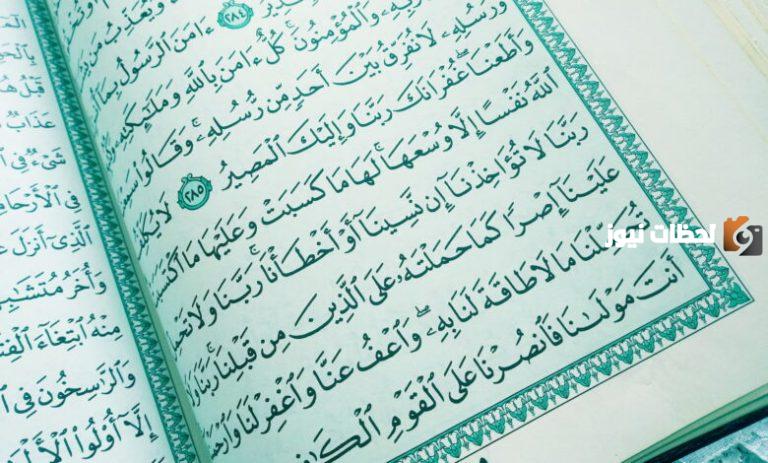 وَيُعَذِّبُ مَن
ءَامَنَ ٱلرَّسُولُ بِمَآ ٢٨٤
رَّبِّهِۦ وَٱلْمُؤْمِنُونَ ۚ كُلٌّ ءَامَنَ بِٱللَّهِ وَمَلَٰٓئِكَتِهِۦ
وَرُسُلِهِۦ لَا نُفَرِّقُ بَيْنَ أَحَدٍ مِّن رُّسُلِهِۦ ۚ وَقَالُوا۟
وَأَطَعْنَا ۖ غُفْرَانَكَ رَبَّنَا وَإِلَيْكَ ٱلْمَصِيرُ ٢٨٥ لَا
ٱللَّهُ نَفْسًا إِلَّا وُسْعَهَا ۚ لَهَا مَا كَسَبَتْ وَعَلَيْهَا مَا
رَبَّنَا لَا تُؤَاخِذْنَآ إِن نَّسِينَآ أَوْ أَخْطَأْنَا ۚ رَبَّنَا وَلَا
عَلَيْنَآ إِصْرًا كَمَا حَمَلْتَهُۥ عَلَى ٱلَّذِينَ مِن قَبْلِنَا ۚ رَبَّنَا
تُحَمِّلْنَا مَا لَا طَاقَةَ لَنَا بِهِۦ ۖ وَٱعْفُ عَنَّا وَٱغْفِرْ لَنَا
أَنتَ مَوْلَىٰنَا فَٱنصُرْنَا عَلَى ٱلْقَوْمِ
عَذَابٌ
شَىْءٌ فِى
فِى ٱلْأَرْحَامِ
ٱلَّذِىٓ أَنزَلَ
وَأُخَرُ
مِنْهُ ٱبْتِغَآءَ
وَٱلرَّٰسِخُونَ فِى
إِلَّآ أُو۟لُوا۟
لحظات نيوز